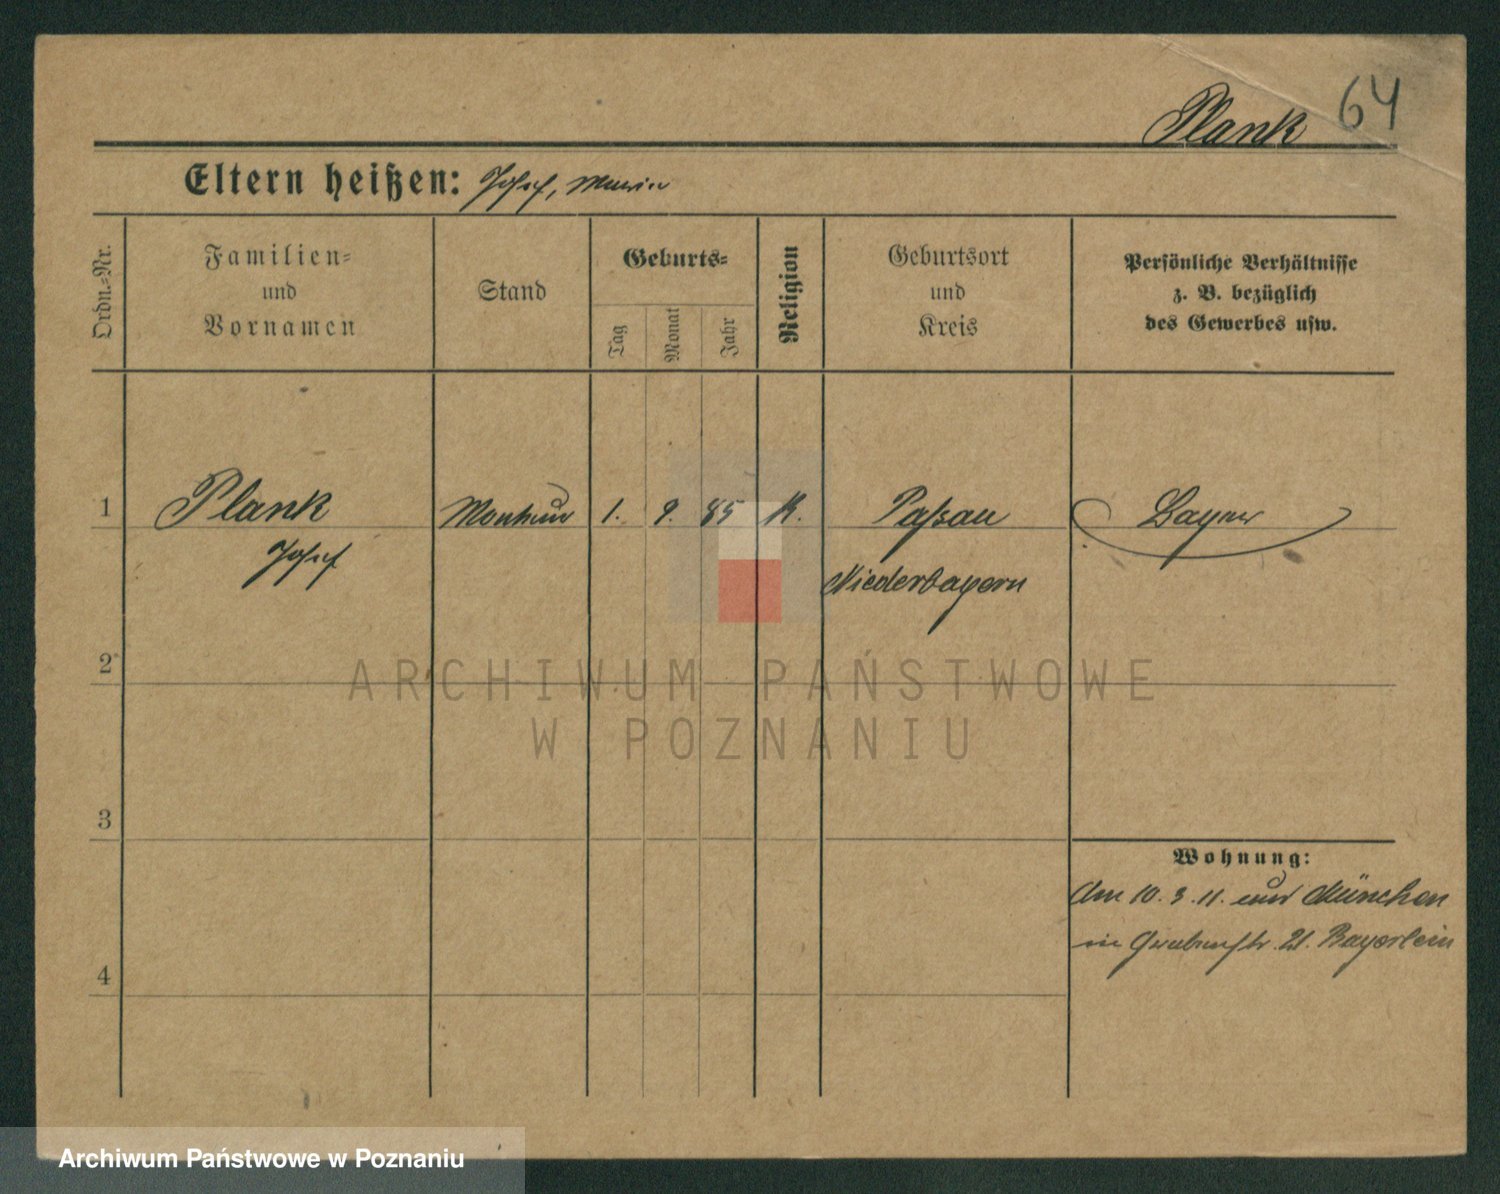 Plank 64
Eltern heißen: Josef, Marie
Ordn.-Nr.
Familien-
und
Vornamen
Stand
Geburts-
Tag
Monat
Jahr
Religion
Geburtsort
und
Kreis
Persönliche Verhältnisse
z. B. bezüglich
des Gewerbes usw.
1 Plank Monteur 1. 9. 85 K. Paßau Bayer
Josef Niederbayern
2
3
4
Wohnung:
Am 10. 3. 11. aus München
in Grabenstr. 21. Bayerlein
ARCHIWUM PAŃSTWOWE
W POZNANIU
Archiwum Państwowe w Poznaniu